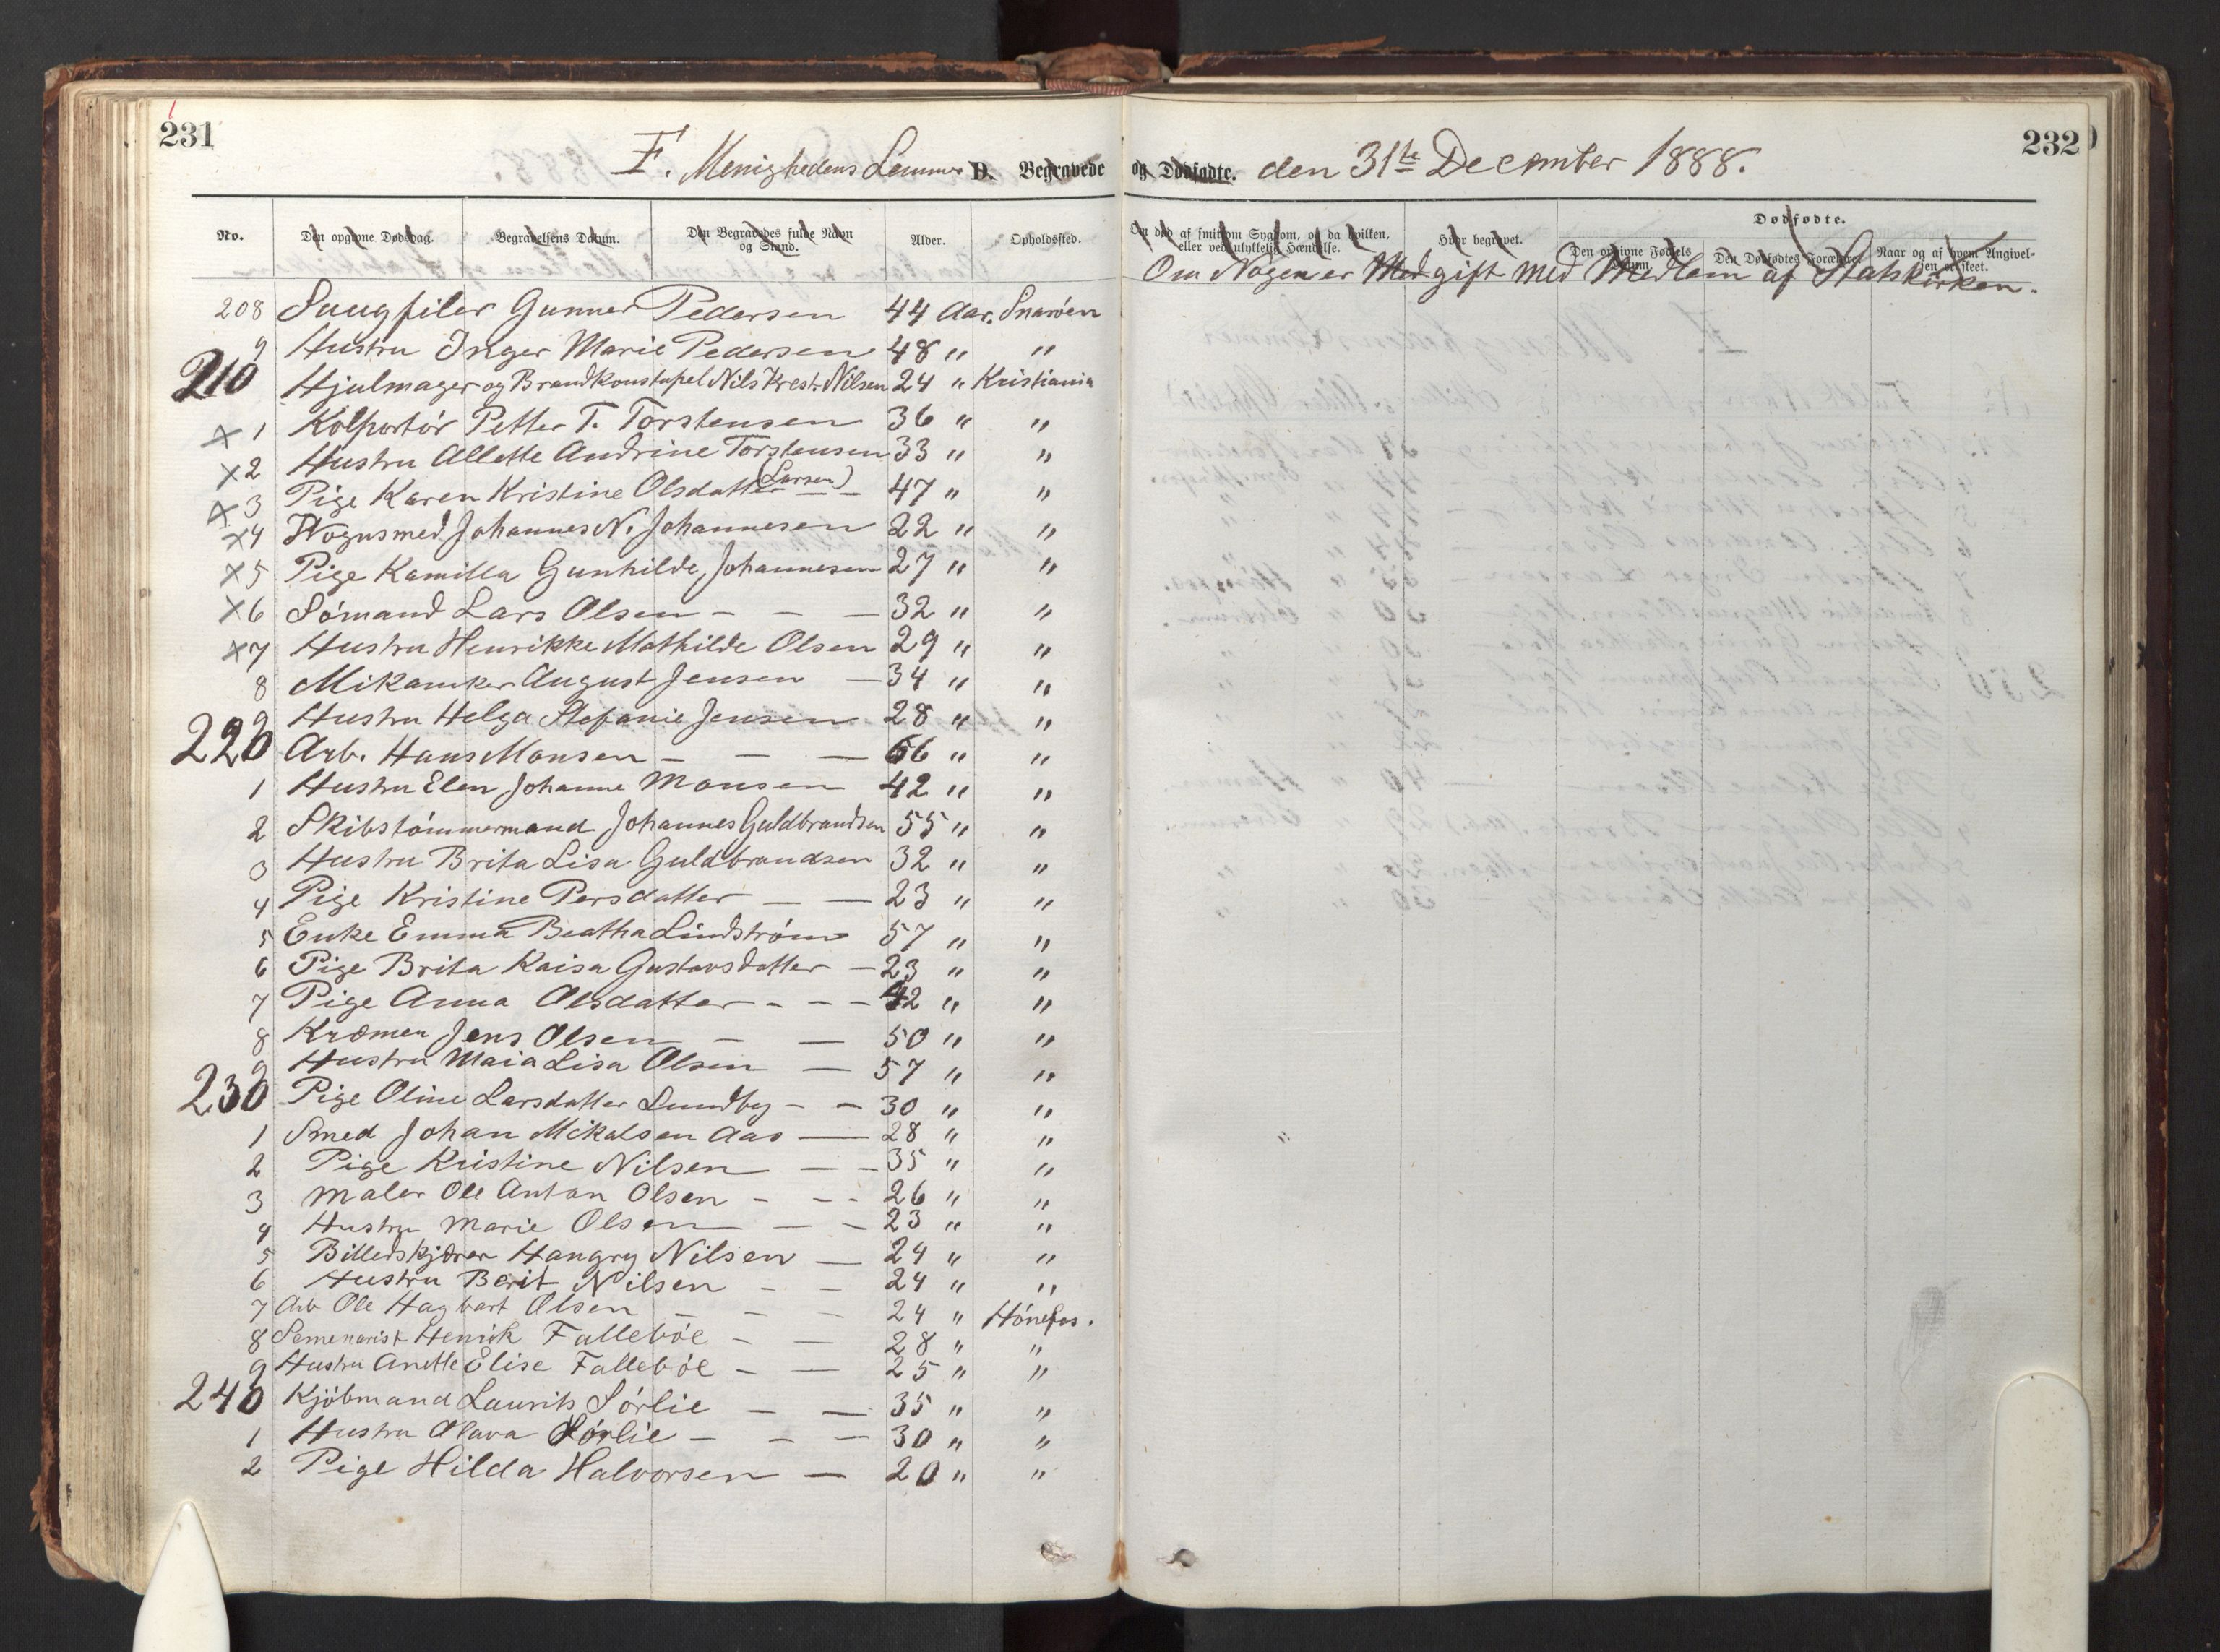 231
232
F. Menighedens Lemmer D. Begravede og Dødfødte. den 31te December 1888.
No. Den opgivne Dødsdag. Begravelsens Datum. Den Begravedes fulde Navn og Stand. Alder. Opholdssted.
Om død af smitsom Sygdom, og da hvilken, eller ved ulykkelig Hændelse. Hvor begravet. Dødfødte.
Den opgivne Fødsels Datum. Den Dødfødtes Forældre. Naar og af hvem Angivelsen er skeet.
Om Nogen er Med gift med Medlem af Statskirken.
208 Saugfiler Gunner Pedersen 44 Aar. Snarøen
9 Hustru Inger Marie Pedersen 48 " "
210 Hjulmager og Brandkonstapel Nils Krest. Nilsen 24 " Kristiania
x 1 Kolportør Petter T. Torstensen 36 " "
x 2 Hustru Allette Andrine Torstensen 33 " "
x 3 Pige Karen Kristine Olsdatter (Larsen) 47 " "
x 4 Vognsmed Johannes N. Johannesen 22 " "
x 5 Pige Kamilla Gunhilde, Johannesen 27 " "
x 6 Sømand Lars Olsen — — — 32 " "
x 7 Hustru Henrikke Mathilde Olsen 29 " "
8 Mikaniker August Jensen — 34 " "
9 Hustru Helga Stefanie Jensen 28 " "
220 Arb. Hans Monsen — — — 56 " "
1 Hustru Elen Johanne Monsen 42 " "
2 Skibstømmermand Johannes Guldbrandsen 55 " "
3 Hustru Brita Lisa Guldbrandsen 32 " "
4 Pige Kristine Persdatter — — 23 " "
5 Enke Emma Beatha Lindstrøm 57 " "
6 Pige Brita Kaisa Gustavsdatter — 23 " "
7 Pige Anna Olsdatter - - — 42 " "
8 Kræmer Jens Olsen — — 50 " "
9 Hustru Maia Lisa Olsen — 57 " "
230 Pige Oline Larsdatter Lundby - — 30 " "
1 Smed Johan Mikalsen Aas — 28 " "
2 Pige Kristine Nilsen — — 35 " "
3 Maler Ole Anton Olsen - - - 26 " "
4 Hustru Marie Olsen — — 23 " "
5 Billedskjærer Hangry Nilsen — 24 " "
6 Hustru Berit Nilsen — — 24 " "
7 Arb Ole Hagbart Olsen — — — 24 " Hønefos.
8 Semenarist Henrik Fallebøe — — 28 " "
9 Hustru Anette Elise Fallebøe — — 25 " "
240 Kjøbmand Laurits Sørlie — — 35 " "
1 Hustru Olava Sørlie — — — 30 " "
2 Pige Hilda Halvorsen — 20 " "